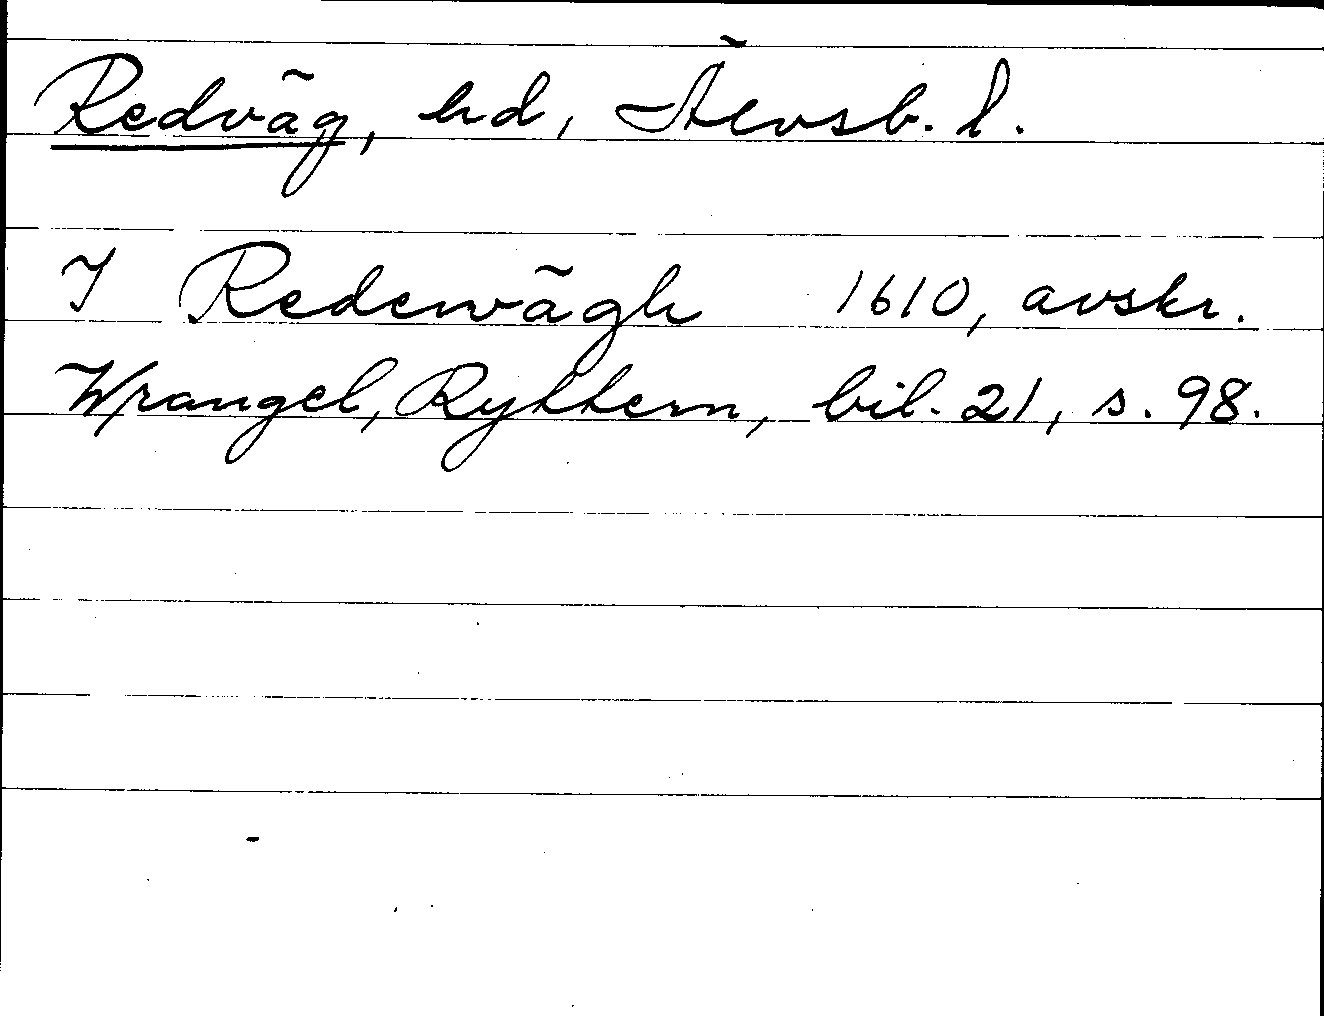 Redväg, hd, Älvsb. l.
I Redewägh 1610, avskr.
Wrangel, Ryttern, bil. 21, s. 98.